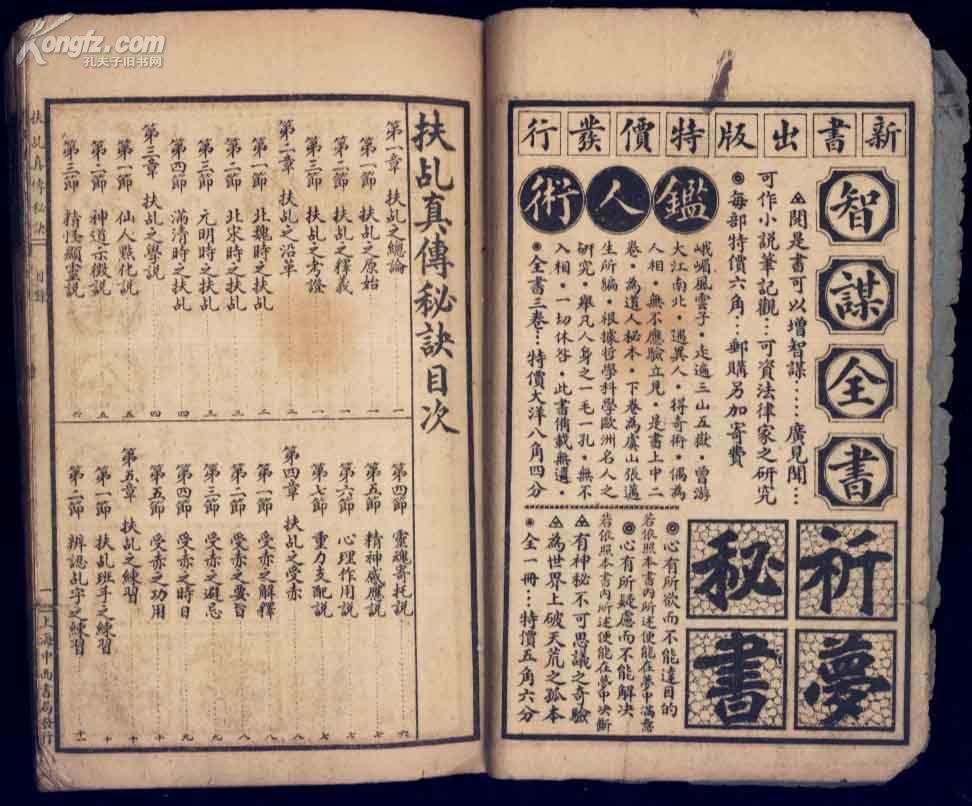 Kongfz.com
孔夫子旧书网
新書出版特價發行
智謀全書
▲閱是書可以增智謀……廣見聞……
可作小説筆記觀…可資法律家之研究
●每部特價六角…郵購另加寄費
鑑人術
峨嵋風雲子·走遍三山五嶽·曾游
大江南北·遇異人·得奇術·偶為
人相·無不應驗立見·是書上中二
卷·為道人秘本·下卷為虞山張邁
生所編·根據哲學科學歐洲名人之
研究·舉凡人身之一毛一孔·無不
入相·一切休咎·此書備載無遺·
●全書三卷…特價大洋八角四分
祈夢秘書
◎心有所欲而不能達目的
若依照本書內所述便能在夢中滿意
◎心有所疑慮而不能解決
若依照本書內所述便能在夢中決斷
▲有神秘不可思議之奇驗
▲為世界上破天荒之孤本
●全一冊…特價五角六分
扶乩真傳秘訣目次
第一章 扶乩之總論 一
第一節 扶乩之原始 一
第二節 扶乩之釋義 一
第三節 扶乩之考證 一
第二章 扶乩之沿革 二
第一節 北魏時之扶乩 二
第二節 北宋時之扶乩 三
第三節 元明時之扶乩 三
第四節 滿清時之扶乩 四
第三章 扶乩之學説 四
第一節 仙人點化説 五
第二節 神道示徵説 五
第三節 精怪顯靈説 六
第四節 靈魂寄托説 六
第五節 精神感應説 七
第六節 心理作用説 七
第七節 重力支配説 七
第四章 扶乩之受赤 八
第一節 受赤之解釋 八
第二節 受赤之要旨 八
第三節 受赤之避忌 九
第四節 受赤之時日 九
第五節 受赤之功用 十
第五章 扶乩之練習 十
第一節 扶乩班手之練習 十
第二節 辨認乩字之練習 十一
扶乩真傳秘訣 目錄
一
上海中西書局發行